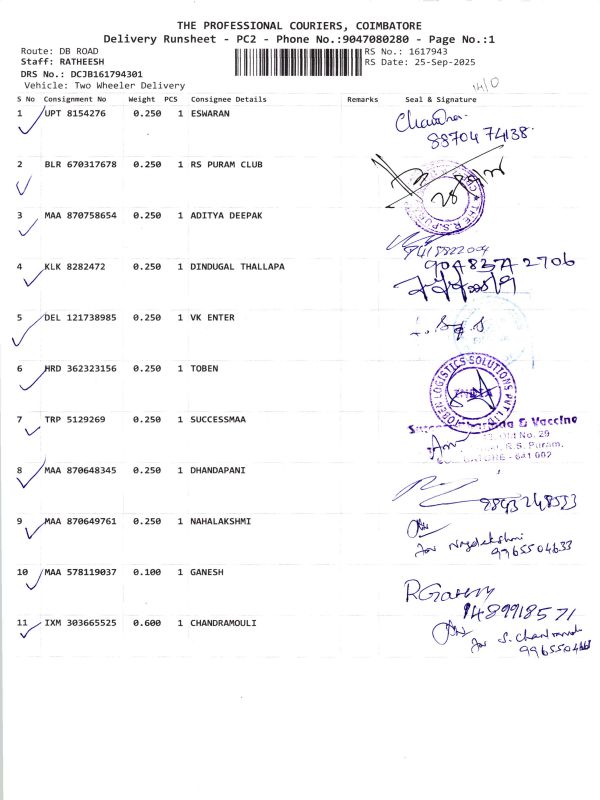 THE PROFESSIONAL COURIERS, COIMBATORE
Delivery Runsheet - PC2 - Phone No.:9047080280 - Page No.:1
Route: DB ROAD RS No.: 1617943
Staff: RATHEESH RS Date: 25-Sep-2025
DRS No.: DCJB161794301
Vehicle: Two Wheeler Delivery
S No Consignment No Weight PCS Consignee Details Remarks Seal & Signature
1 UPT 8154276 0.250 1 ESWARAN
88704 74138
2 BLR 670317678 0.250 1 RS PURAM CLUB
3 MAA 870758654 0.250 1 ADITYA DEEPAK
4 KLK 8282472 0.250 1 DINDUGAL THALLAPA
5 DEL 121738985 0.250 1 VK ENTER
6 HRD 362323156 0.250 1 TOBEN
TOBEN LOGISTICS SOLUTIONS PVT LTD
7 TRP 5129269 0.250 1 SUCCESSMAA
& Vaccine
Old No. 29
R.S. Puram,
- 641 002
8 MAA 870648345 0.250 1 DHANDAPANI
9 MAA 870649761 0.250 1 NAHALAKSHMI
for
9965504633
10 MAA 578119037 0.100 1 GANESH
11 IXM 303665525 0.600 1 CHANDRAMOULI
for S.